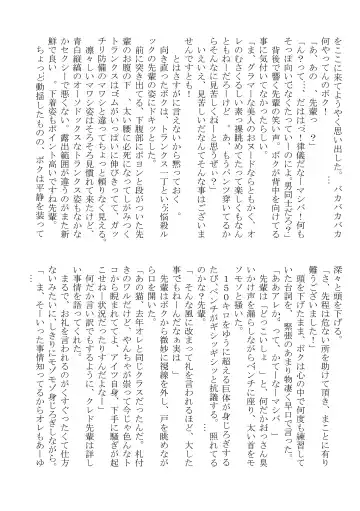 をここに来てようやく思い出した。　バカバカバカ
何やってんのボク！
「あ、あの　、先輩っ　？　」
「ん？って、　だははっ！律儀だなーマシバ！何も
そっぽ向いてなくたっていーのに。男同士だろ？」
背後で響く先輩の笑い声。ボクが背中を向けてる
事に気付いてなかったらしい。
「ま、グラマーな美人のヌードならともかく、オ
レのむさくるしい素っ裸眺めてたって楽しくもなん
ともねーだろーけど　、あ、もうパンツ穿いてるか
らそんなに見苦しくねーと思うぜぇ？」
いえいえ、見苦しいだなんてそんな事はございま
せん
とはさすがに言えないから黙っておく　。
向き直ったボクは、トランクス一丁という悩殺ル
ックの先輩の姿にドキッとした。
前に突き出て下腹部にぽっこと段がついた先
輩のお腹の下、太い腰に必死になってしがみつく
トランクスはゴムがいっぱいに伸びきってて、ガッ
チリ防備のマワシと違ってちょっと頼りなく見える。
凛々しいマワシ姿はそろそろ見慣れて来たけど、
青白縦縞のオーソドックスなトランクス姿もなかな
かセクシーで悪くない　。露出範囲が違うのがまた新
鮮で良い　。下着姿もポイント高いですね先輩。
ちょっと動揺したものの、ボクは平静を装って
深々と頭を下げる。
「さ、先程は危ない所を助けて頂き、まことに有り
難うございました！」
頭を下げたまま、ボクは心の中で何度も練習して
いた台詞を、　緊張のあまり物凄く早口で言った。
「ああアレか。って、かてーなーマシバ　」
先輩は「どっこいしょ　」と、何だかおっさん臭
いかけ声を漏らしながらベンチに座り、太い首を
モソモソ掻く。
１５０キロをゆうに超える巨体が身じろぎする
たび、ベンチがギシッギシッと抗議する。　照れてる
のかな？先輩。
「　そんな風に改まって礼を言われるほど、大した
事でもねーんだなぁ実は　」
先輩はボクから微妙に視線を外し、戸を眺めなが
ら口を開いた。
「あの猫な、去年オレと同じクラスだったんだ。札付
きのワルだけど、やんちゃが祟って今じゃ色んなトコ
から睨まれててよ、アイツ自身、下手に騒ぎが起
こせねー状況だったりすんだよなー」
何だか言い訳でもするように、クレド先輩は詳し
い事情を語ってくれた。
まるで、お礼を言われるのがくすぐったくて仕方
ないみたいに、しきりにモソモソ身じろぎしながら
…。
「ま、そーいった事情知ってるからオレもあーゆ